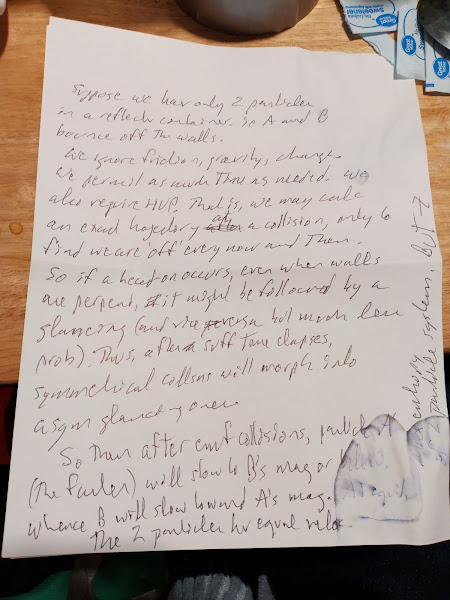 Suppose we hav only 2 particles
in a reflectv container. ie A and B
bounce off the walls.
We ignore friction, gravity, charge.
We permit as much time as needed. We
also require HUP. That is, we may calc
an exact trajectory aft a collision, only to
find we are off every now and then.
So if a head-on occurs, even when walls
are perpend, it might be followed by a
glancing (and vice versa but much less
prob). Thus, after suff time elapses,
symmetrical collsns will morph into
asym glancing ones.
So then after enuf collisions, particle A
(the faster) will slow to B's mag or below.
Whence B will slow toward A's mag. At equil
The 2 particles hv equal veloc.
entropy
2 particle system. But
Great Value
Sweetener